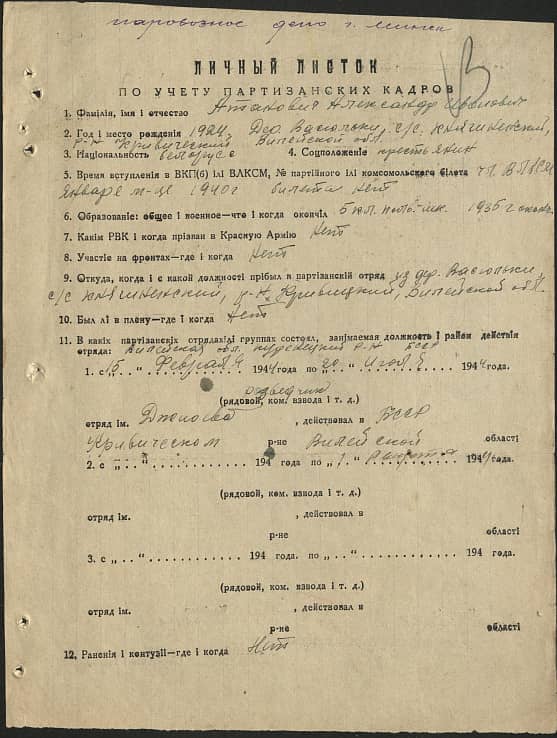 паровозное депо г. Минск
ЛИЧНЫЙ ЛИСТОК
ПО УЧЕТУ ПАРТИЗАНСКИХ КАДРОВ
1. Фамілія, імя і отчество Атанович Александр Иванович
2. Год і место рождения 1924, Дер. Васюльки, с/с. Княгининский,
р-н Кривический Вилейской обл.
3. Національность белорус 4. Соцположеніе крестьянин
5. Время вступленія в ВКП(б) ілі ВЛКСМ, № партійного ілі комсомольского білета чл. ВЛКСМ
Январе м-це 1940г билета нет
6. Образованіе: общее і военное—что і когда окончіл 5 кл. поль. шк. 1935 г
7. Какім РВК і когда прізван в Красную Армію Нет
8. Участіе на фронтах—где і когда Нет
9. Откуда, когда і с какой должності прібыл в партізанскій отряд из дер. Васюльки,
с/с Княгининский, р-н, Кривицкий, Вилейской обл.
10. Был лі в плену—где і когда Нет
11. В какіх партізанскіх отрядах ілі группах состоял, занімаемая должность і район действія
отряда: Вилейская обл. р-н БССР
1. с „15“ Февраля 1944 года по „20“ Июля 1944 года.
разведчик
(рядовой, ком. взвода і т. д.)
отряд ім. , действовал в БССР
Кривическом р-не Вилейской області
2. с „..“ 194 года по „1“ 1944 года.
(рядовой, ком. взвода і т. д.)
отряд ім. , действовал в
р-не області
3. с „..“ 194 года. по „..“ 194 года.
(рядовой, ком. взвода і т. д.)
отряд ім. , действовал в
р-не області
12. Раненія і контузіі—где і когда Нет